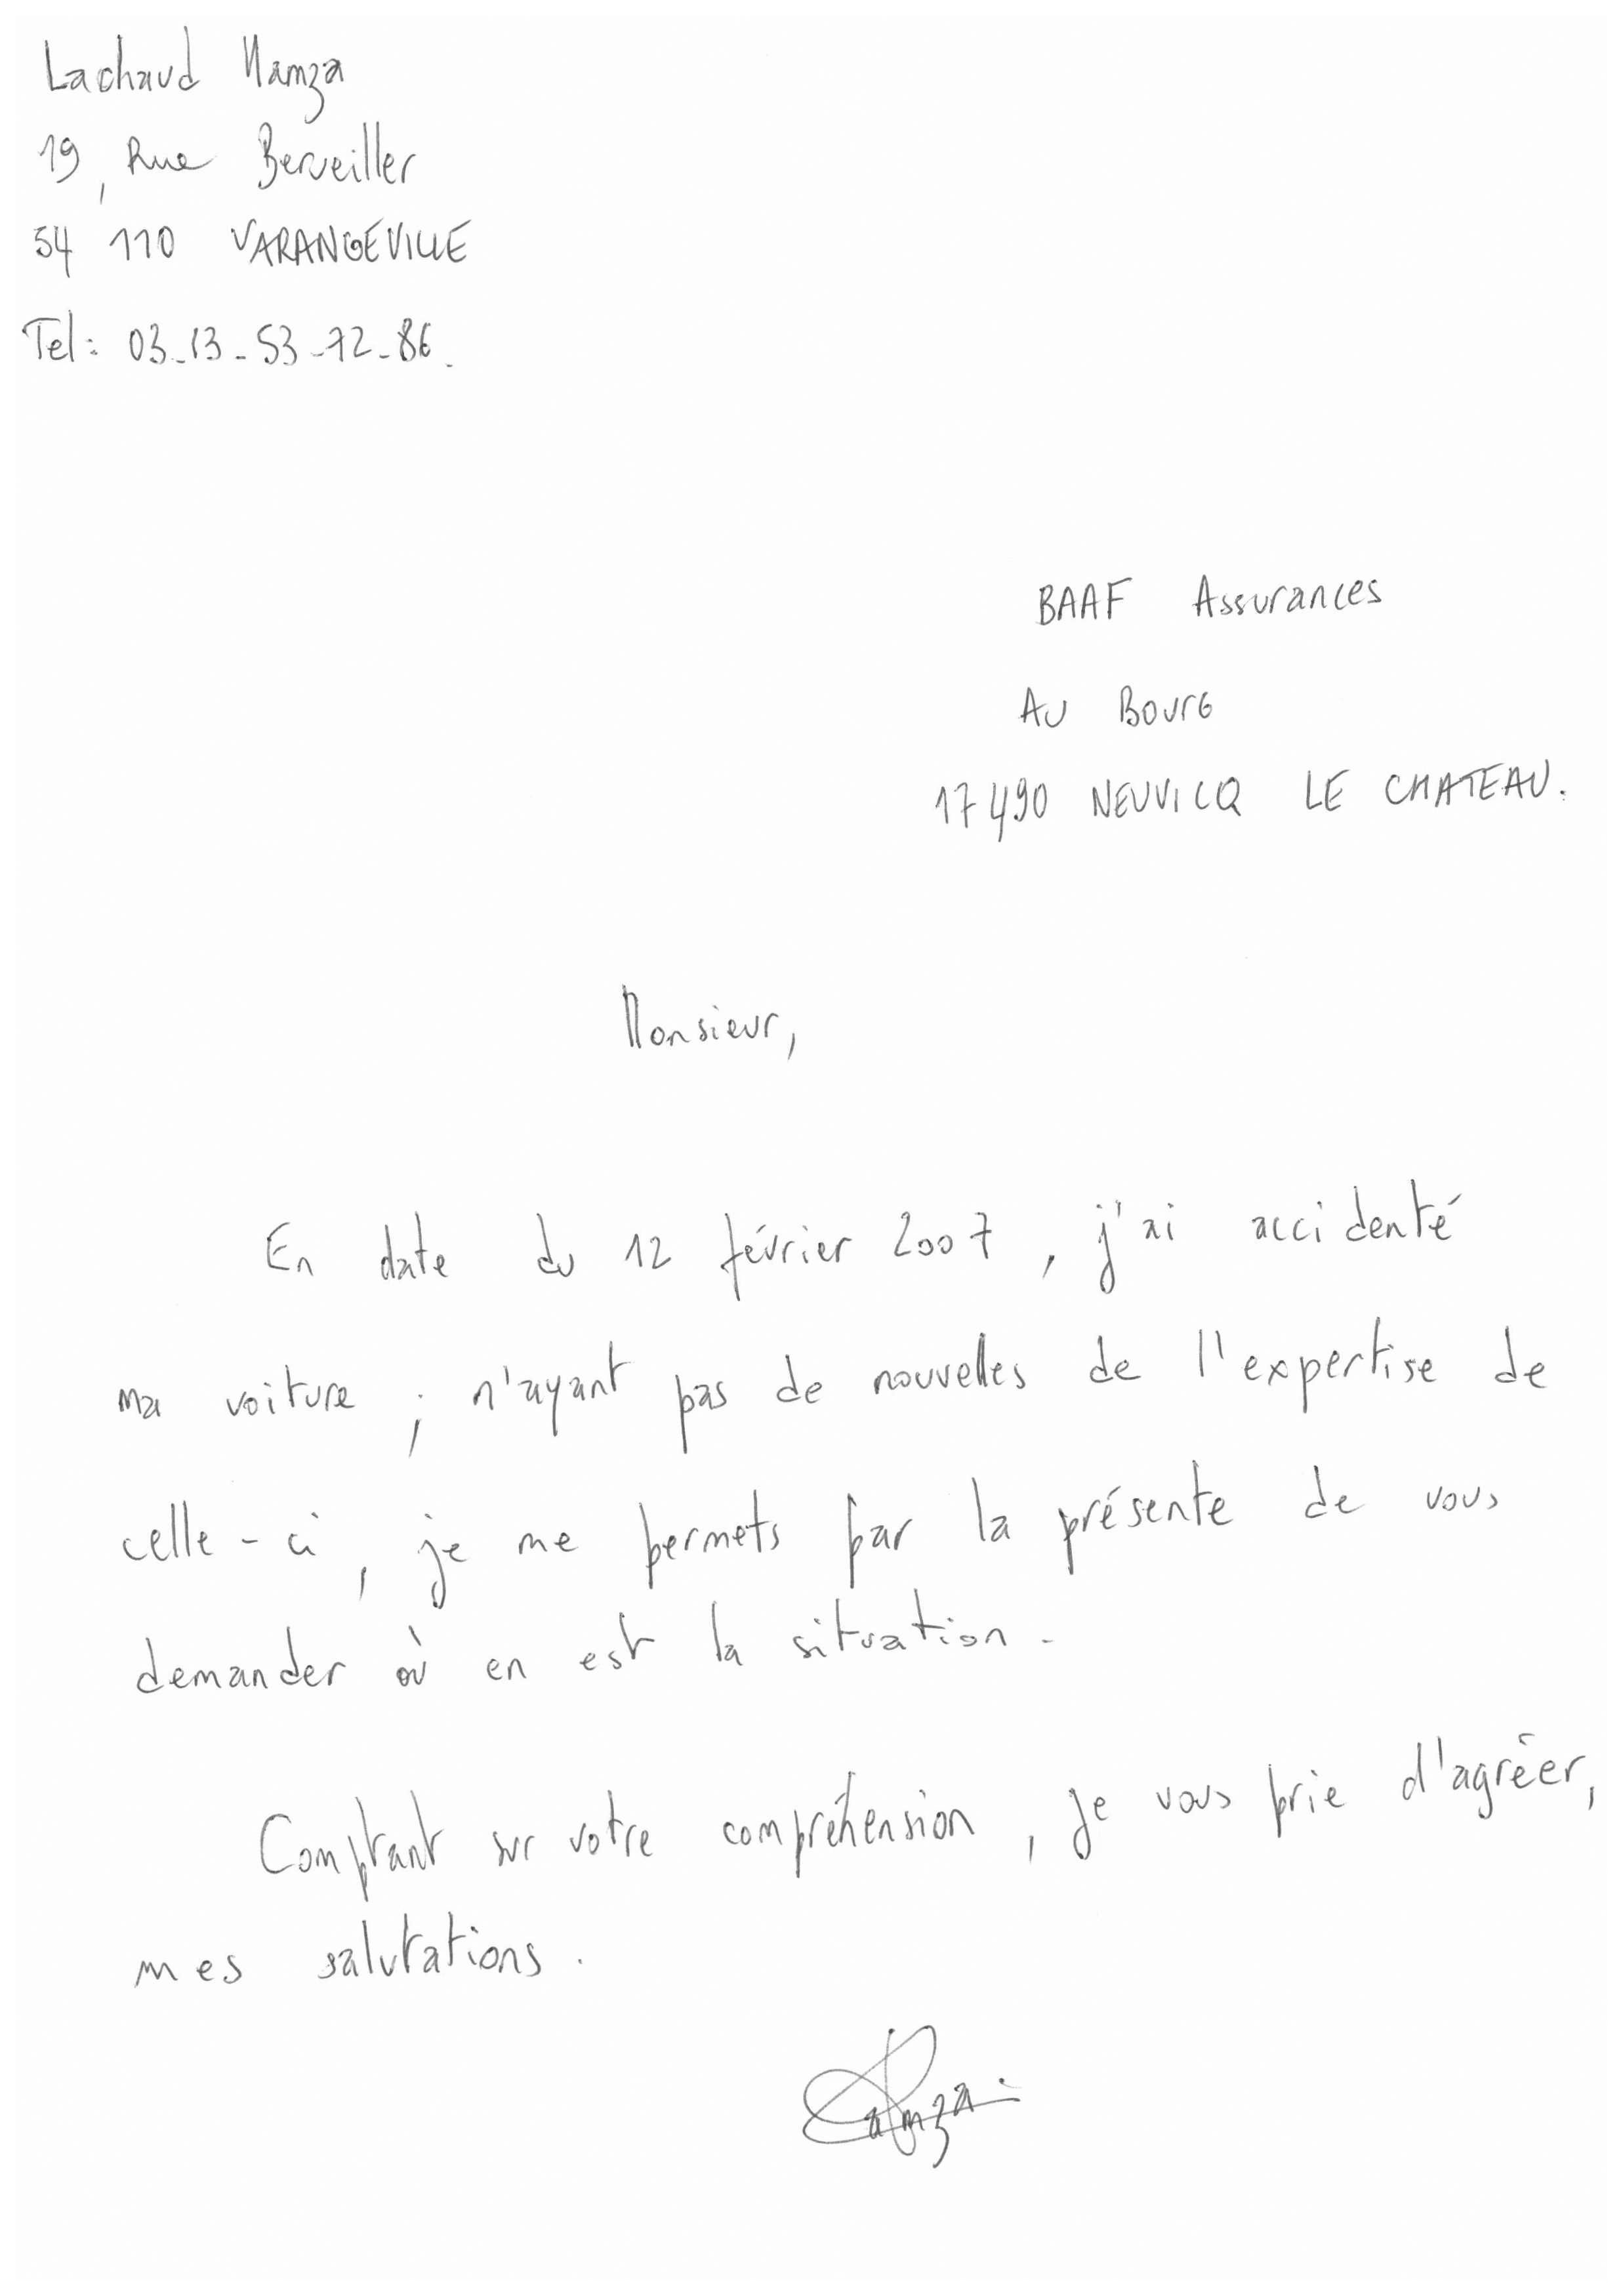 Lachaud Hamza
19, Rue Berveiller
54 110 VARANGEVILLE
Tel: 03-13-53-72-86.
BAAF Assurances
Au Bourg
17490 NEUVICQ LE CHATEAU.
Monsieur,
En date du 12 février 2007, j'ai accidenté
ma voiture ; n'ayant pas de nouvelles de l'expertise de
celle-ci, je me permets par la présente de vous
demander où en est la situation.
Comptant sur votre compréhension, je vous prie d'agréer,
mes salutations.
Hamza